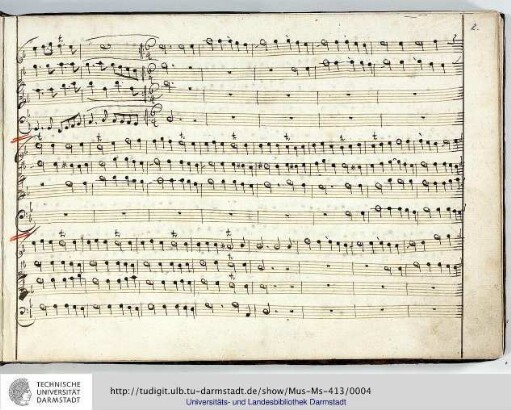 2.
TECHNISCHE
UNIVERSITÄT
DARMSTADT
http://tudigit.ulb.tu-darmstadt.de/show/Mus-Ms-413/0004
Universitäts- und Landesbibliothek Darmstadt